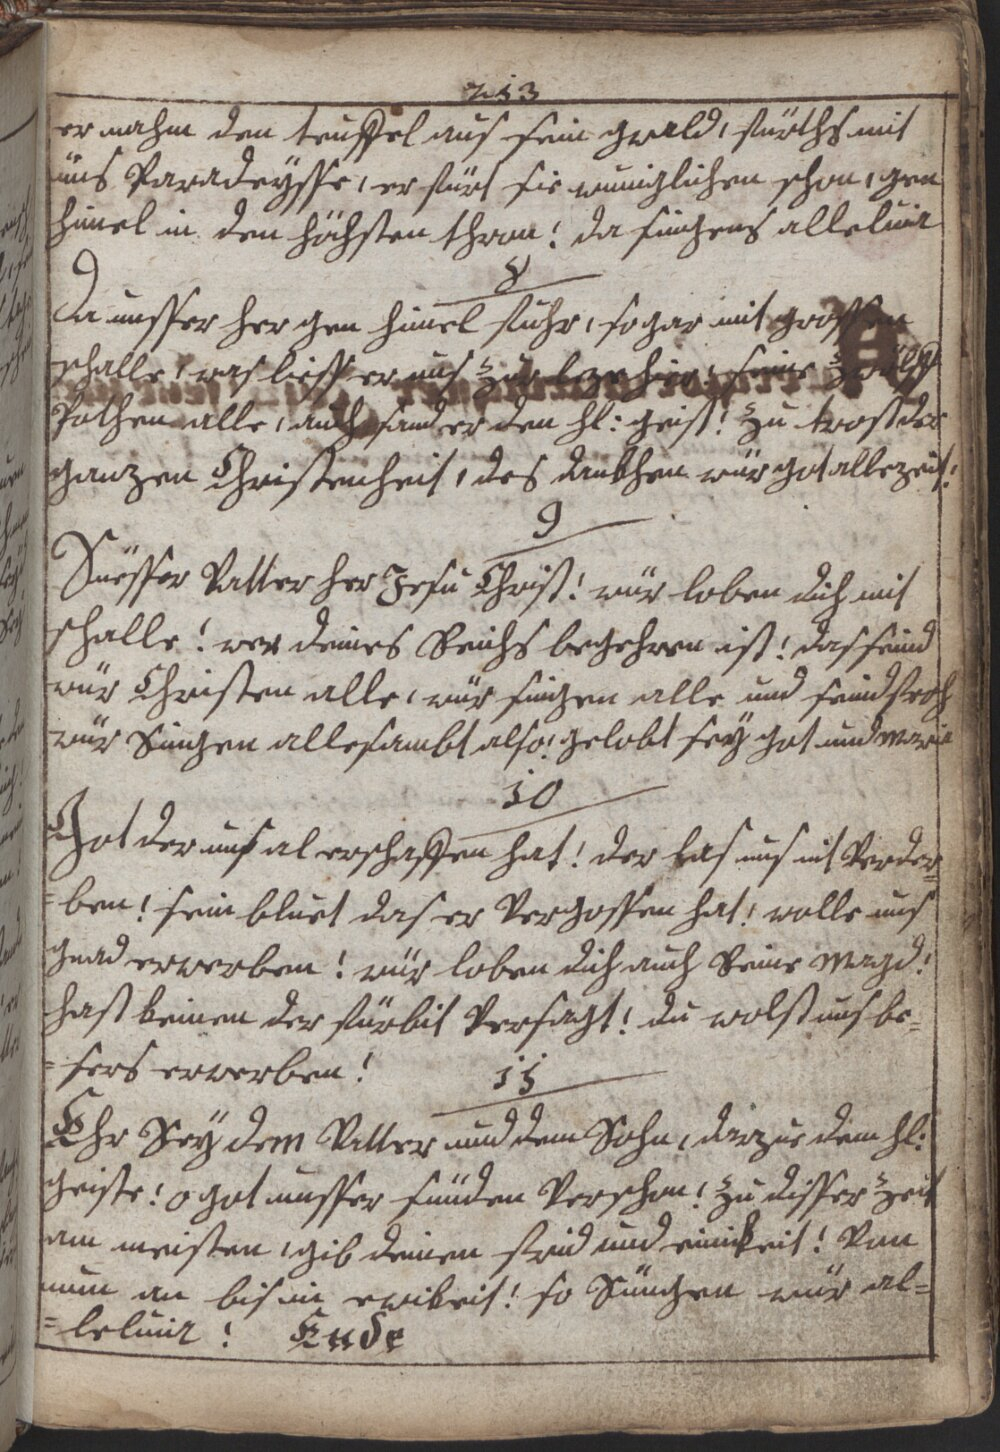 213
er nahm den teuffel aus sein gwald, fürths mit
üns Paradeysse, er fürt sie wuniglichen schon, gen
himel in den höchsten thron! da singens alleluia
8
Da unsser her gen himel fuhr, so gar mit grossen
schalle, was liess er uns zur leze hier! seine zwölff
Pothen alle, auch sand er den hl: geist! zu trost der
ganzen Christenheit, des dankhen wür got allezeit!
9
Süesser Vatter her Jesu Christ! wür loben dich mit
schalle! wer deines Reichs begehren ist! das seind
wür Christen alle, wür singen alle und seind froh
wür Singen allesambt also! gelobt sey got und Maria
10
Got der uns al erschaffen hat! der las uns nit Verder=
=ben! sein bluet das er Vergossen hat! wolle uns
gnad erwerben! wür loben dich auch Reine Magd!
hast keinen der fürbit Versagt! du wolst uns be=
=sers erwerben!
11
Ehr Sey dem Vatter und dem Sohn, darzue dem hl:
geiste! o got unsser sünden Verschon! zu disser zeit
am meisten, gib deinen frid und einikeit! Von
nun an bis in ewikeit! so Süngen wür al=
=leluia! Ende